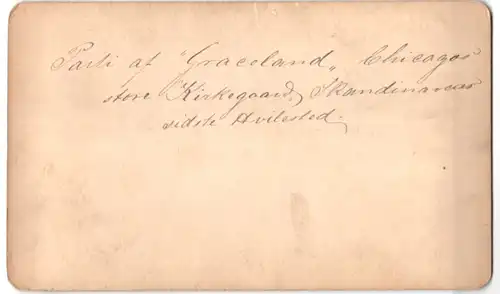 Parti af "Graceland„ Chicagos
store Kirkegaard, Skandinavers
sidste Hvilested.